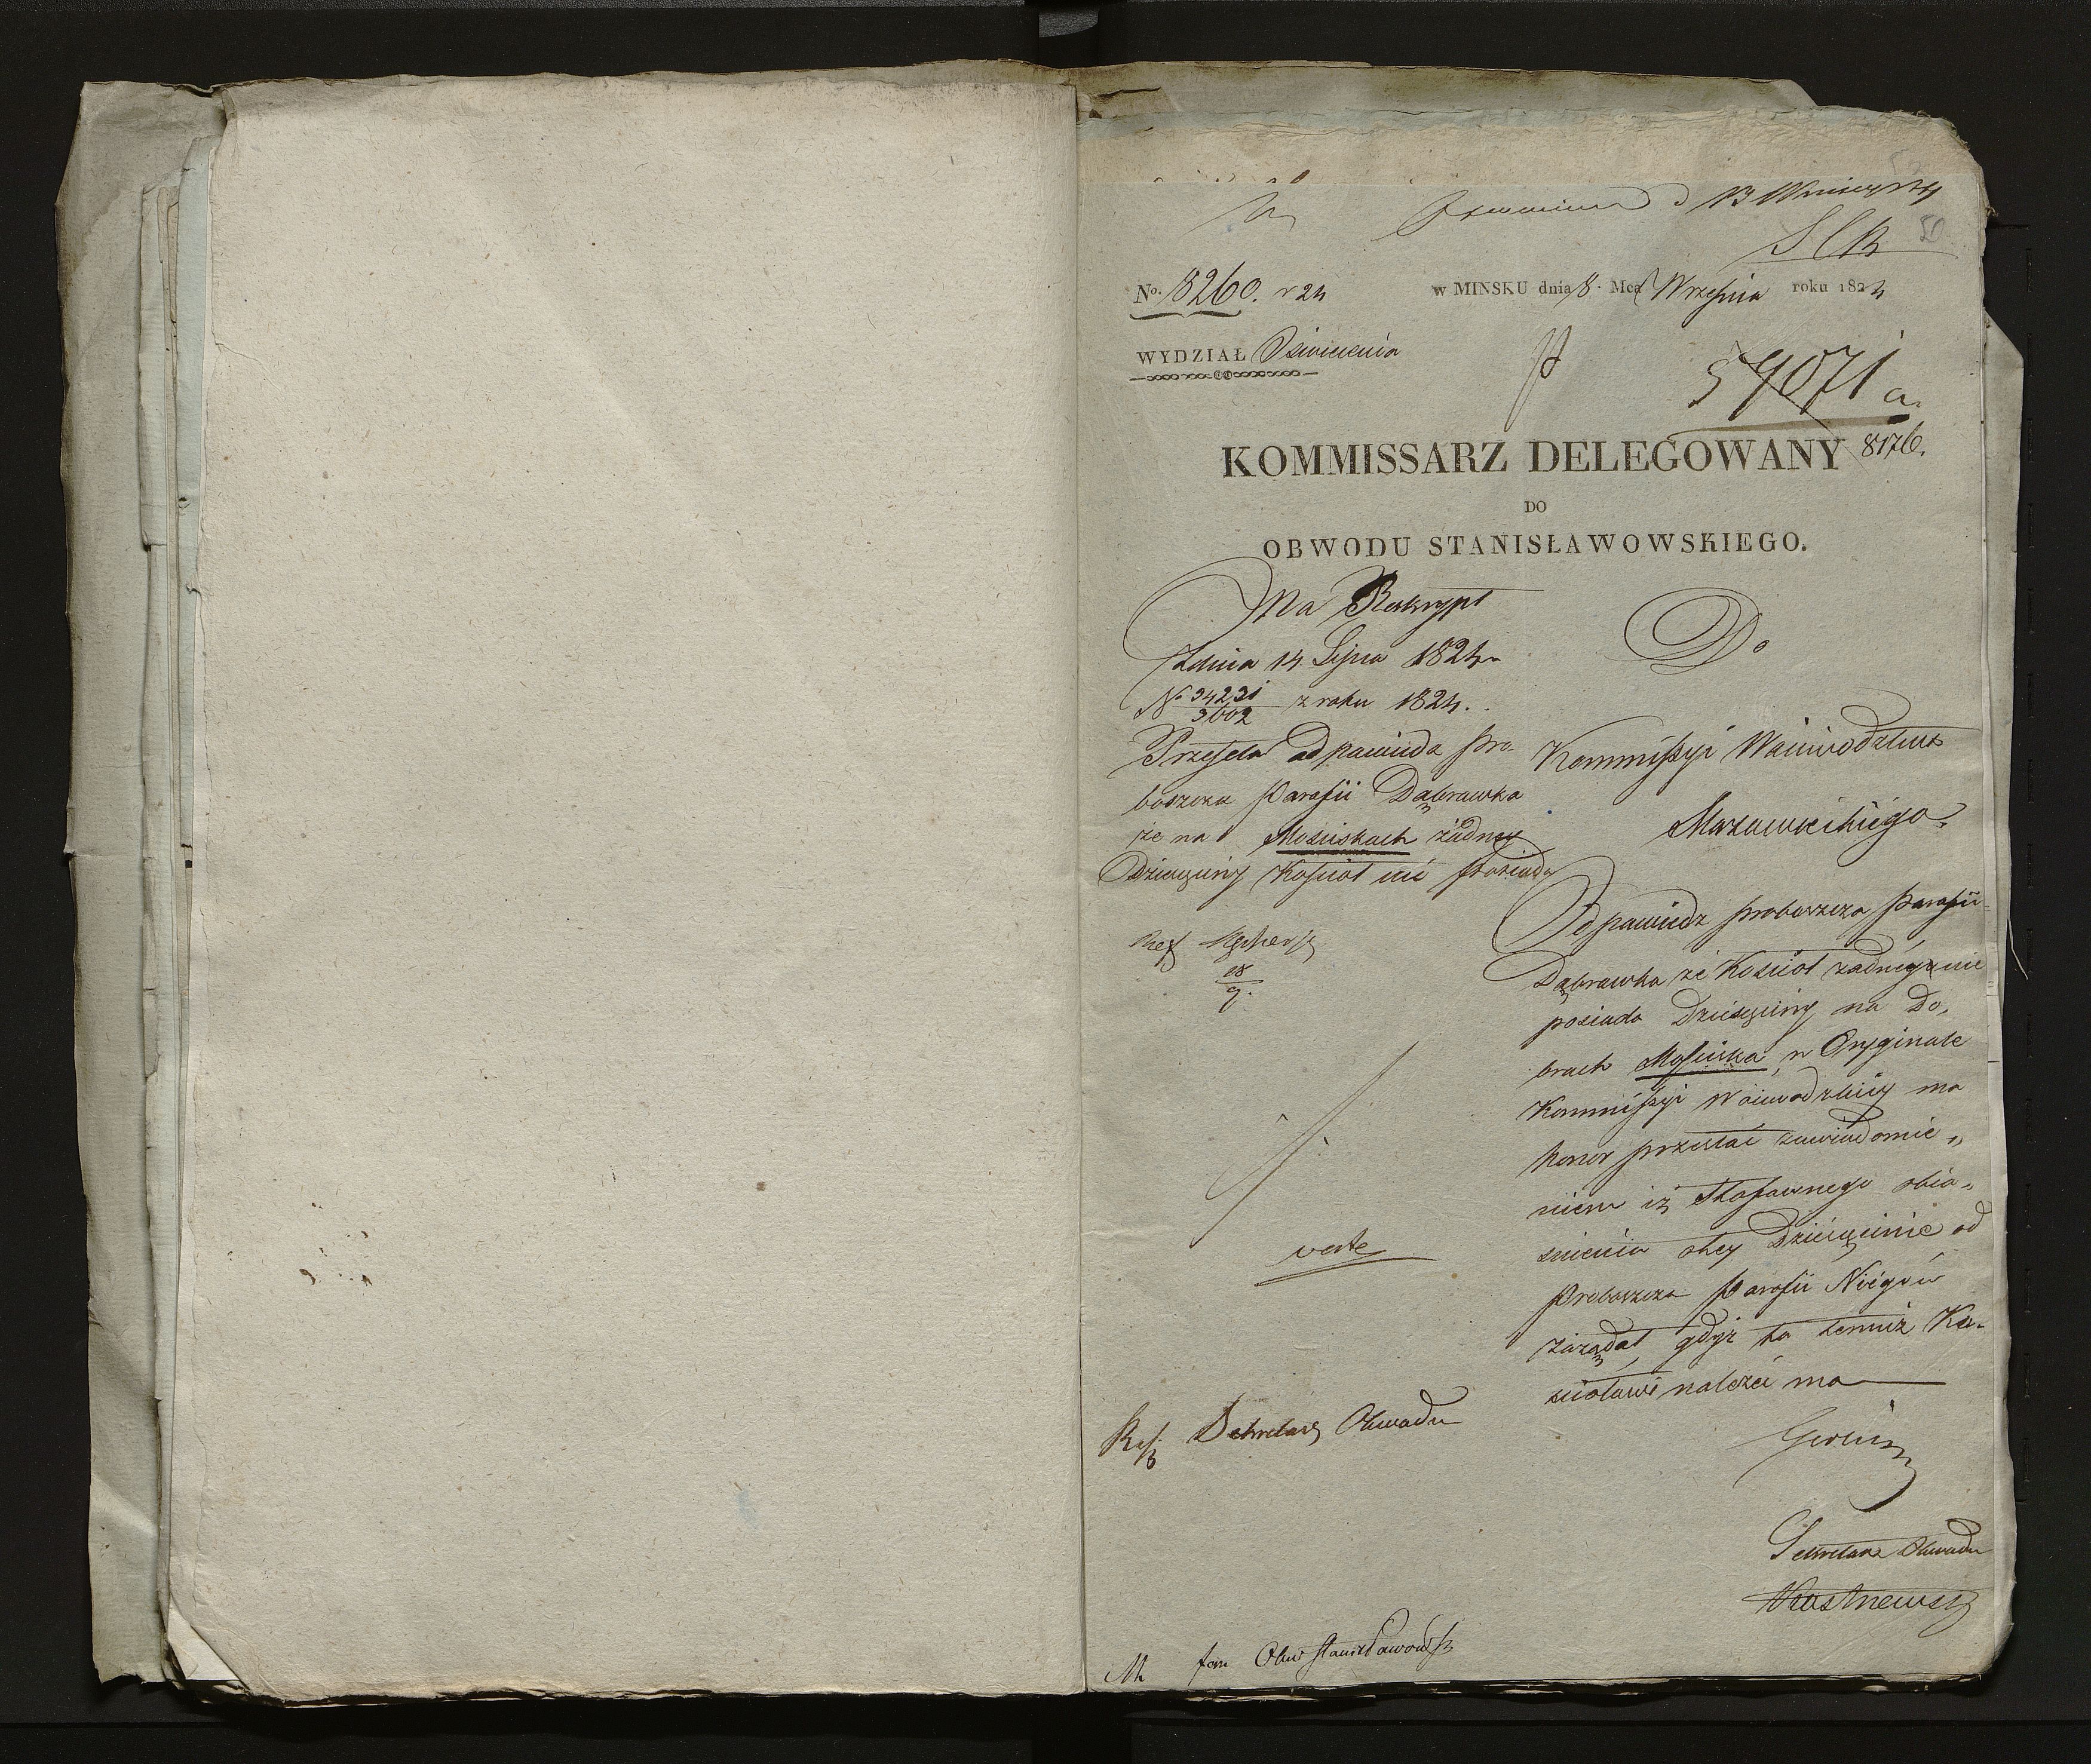 13
50
No. 8260. r 24 w MINSKU dnia 8. Mca Września roku 1824
WYDZIAŁ Oświecenia
59071
8176.
KOMMISSARZ DELEGOWANY
DO
OBWODU STANISŁAWOWSKIEGO.
Na Reskrypt
zdnia 14 Lipca 1824
No 34231/3602 z roku 1824.
Przeseła odpowiedz Pro-
boszcza Parafii Dąbrowka
że na Mościskach żadney
Dziesięciny Kościoł nie posiada
08/9.
verte
Sekretarz Obwodu
Do
Kommissyi Woiewodztwa
Mazowieckiego.
Odpowiedz proboszcza Parafii
Dąbrowka że Kościoł żadney nie
posiada Dziesięciny na Do,
brach Mościska, w Oryginale
Kommissyi Woiewodzkiey ma
honor przesłać zawiadomie,,
niem iż stosownego obia,,
snienia o tey Dziesięcinie od
Proboszcza Parafii Niegów
zażądał, gdyż ta temuż Ko-
ściołowi należeć ma
Sekretarz Obwodu
Obw Stanisławowsk